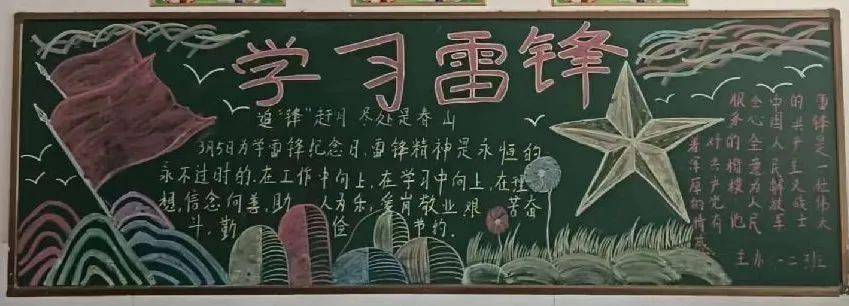 学习雷锋
追“锋”赶月 尽处是春山
3月5日为学雷锋纪念日,雷锋精神是永恒的
永不过时的,在工作中向上,在学习中向上,在理
想,信念向善,助人为乐,爱岗敬业艰苦奋
斗,勤俭节约.
雷锋是一位伟大
的共产主义战士
中国人民解放军
全心全意为人民
服务的楷模,他
对共产党有
着深厚的情感
主办 一二班